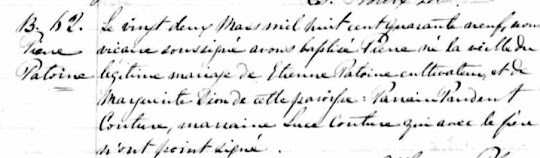 B. 62. Le vingt deux Mars mil huit cent quarante neuf, nous
Pierre vicaire soussigné avons baptisé Pierre né la veille du
Patoine légitime mariage de Etienne Patoine cultivateur, et de
Marguerite Dion de cette paroisse. Parrain Prudent
Couture, marraine Luce Couture qui avec le père
n'ont point signé.